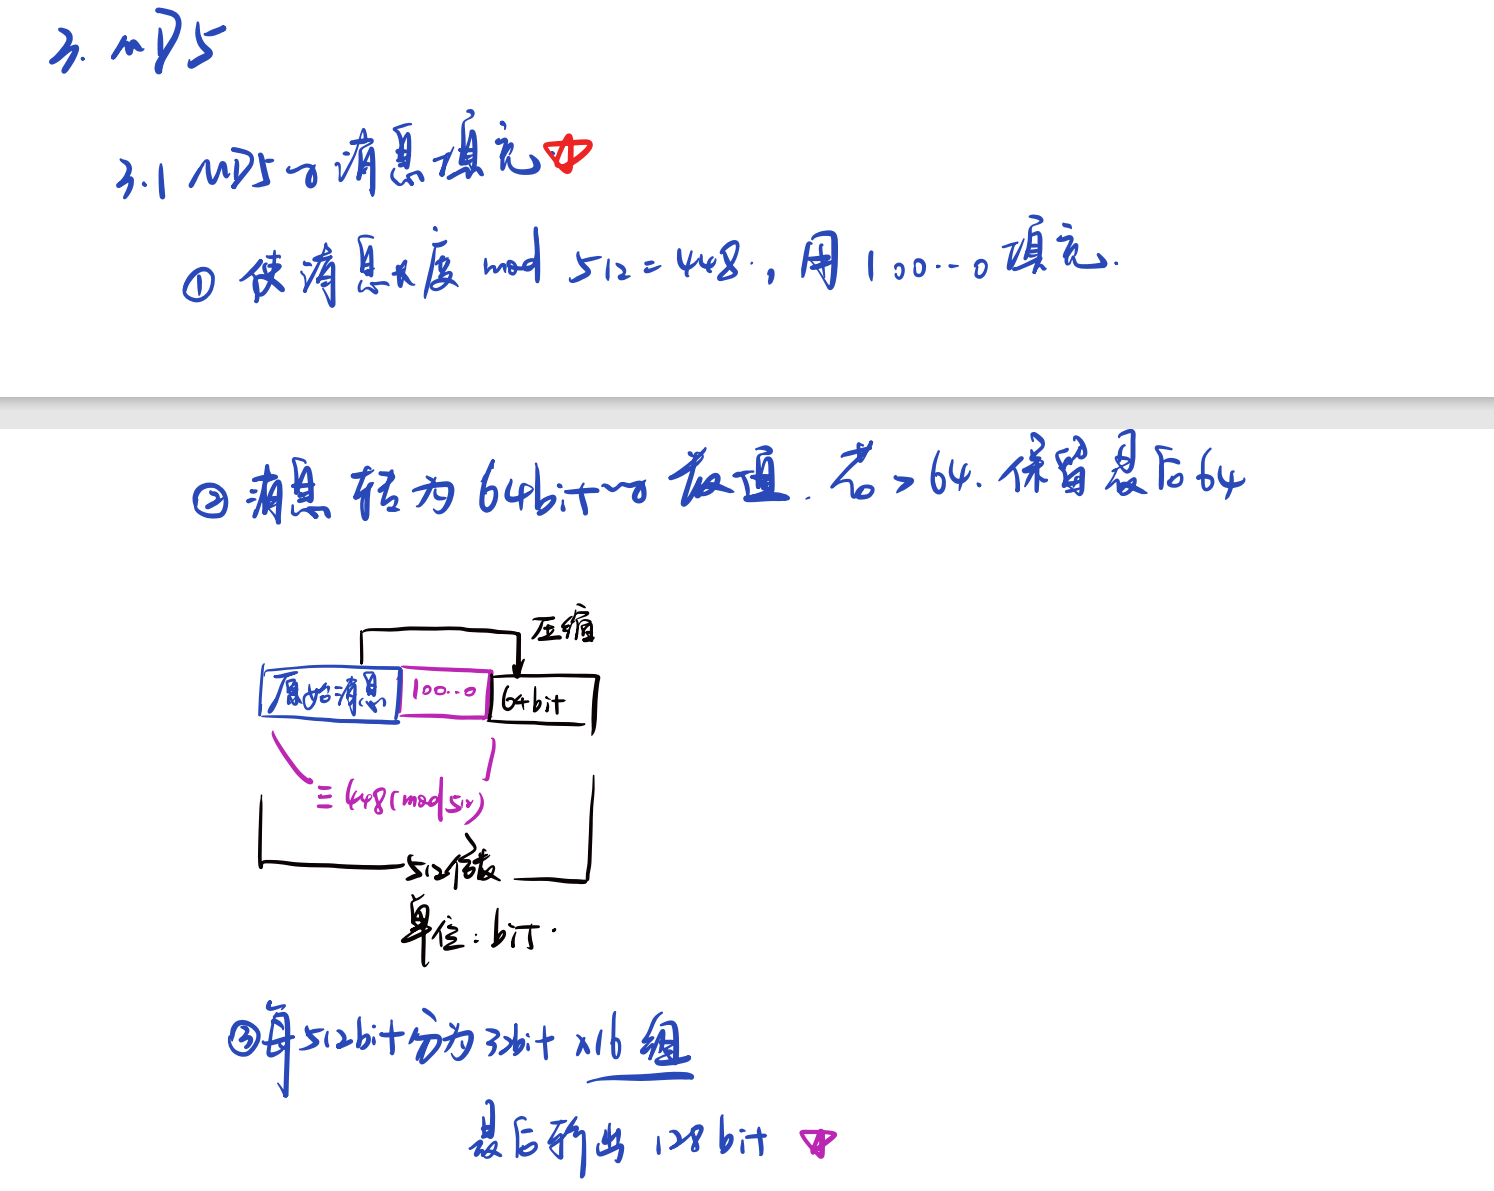 3. MD5
3.1 MD5的消息填充
① 使消息长度 mod 512 = 448, 用 100...0 填充.
② 消息转为 64bit的数值. 若 > 64. 保留最后64
压缩
原始消息 100...0 64bit
≡ 448(mod 512)
512倍数
单位: bit.
③每512bit分为32bit ×16 组
最后输出 128bit